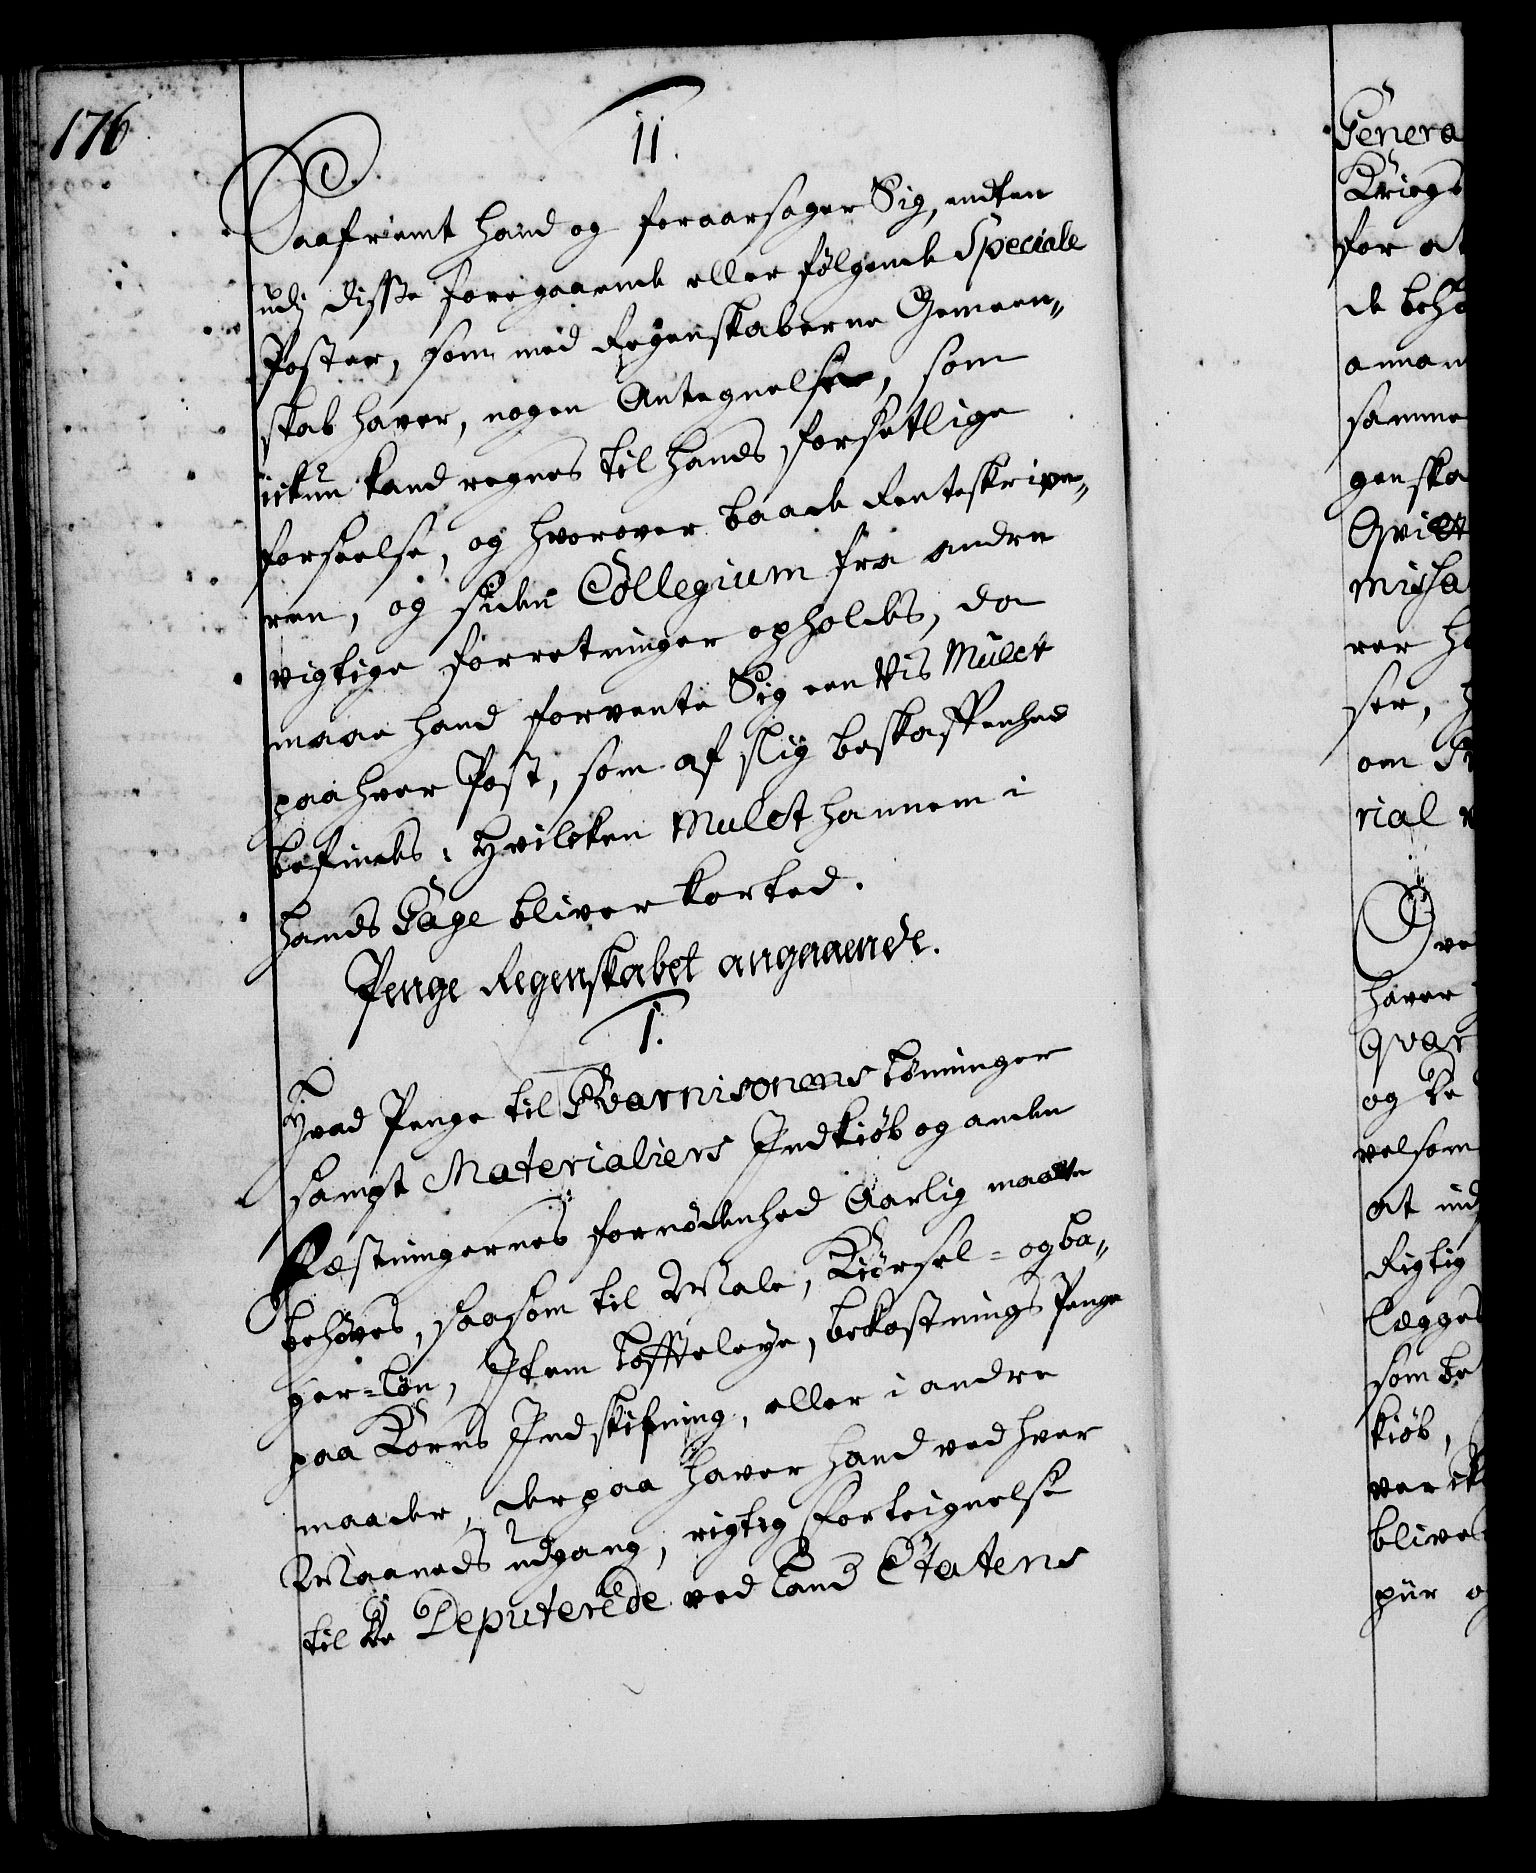 176
11.
Saafremt hand og foraarsager Sig, endten
udj disse foregaaende eller følgende Speciale
Poster, som med Regenskaberne Gemeen„
skab haver, nogen Antegnelser, som
ickun kand regnes til hands forsetlige
forseelse, og hvorover baade Renteskrive„
ren, og siden Collegium fra andre
vigtige forretninger opholdes, da
maae hand forvente Sig een vis Mulct
paa hver Post, som af slig beskaffenhed
befindes; Hvilcken Mulct hannem i
hands Gage bliver korted.
Penge Regenskabet angaaende.
1.
Hvad Penge til Guarnisonens Lønninger
sampt Materialiers Indkiøb og anden
Fæstningernes fornødenhed Aarlig maatte
behøves, saasom til Male, Kiørsel- og ba„
ger-Løn, Item Loffteleye, bekostnings Penge
paa Korns Indskifning, eller i andre
maader, derpaa haver hand ved hver
Maaneds udgang, rigtig forteignelse
til de Deputerede ved Land Etatens
Genera
Kriegs
for at
de behø
annam
samme
genska
Qvitt
missa
rer ha
ser,
om
rial
ve
haver
qvar
og de
velsom
at ind
Rigtig
Legges
som be
kiøb,
ver
blive
pür